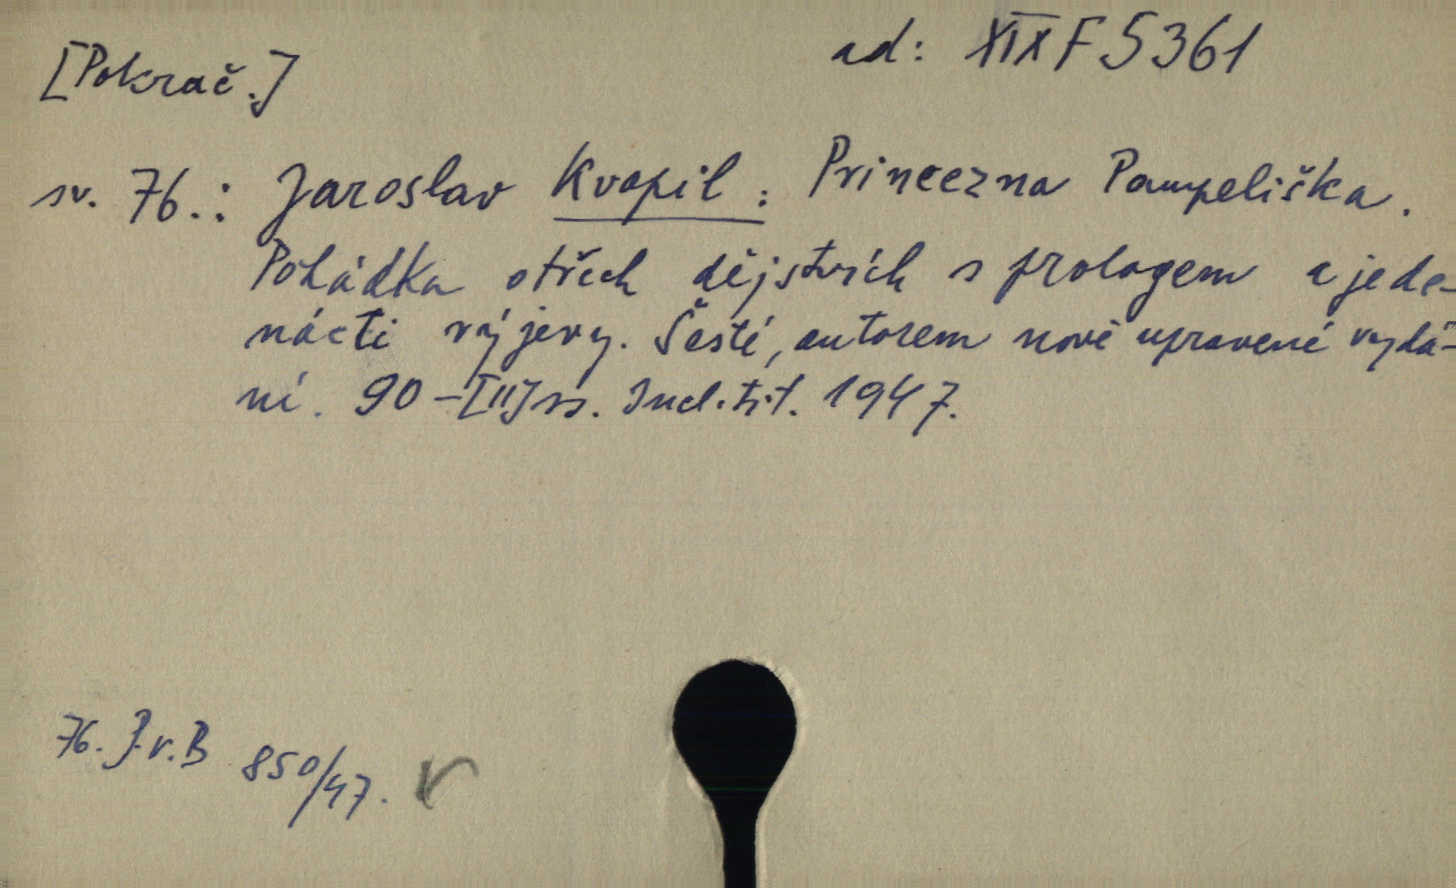 [Pokrač.]
ad: XIX F 5361
sv. 76.: Jaroslav Kvapil: Princezna Pampeliška.
Pohádka o třech dějstvích s prologem a jede-
nácti výjevy. Šesté, autorem nově upravené vydá-
ní. 90-[II] ss. Incl. tit. 1947.
76. J.v.B 850/47.